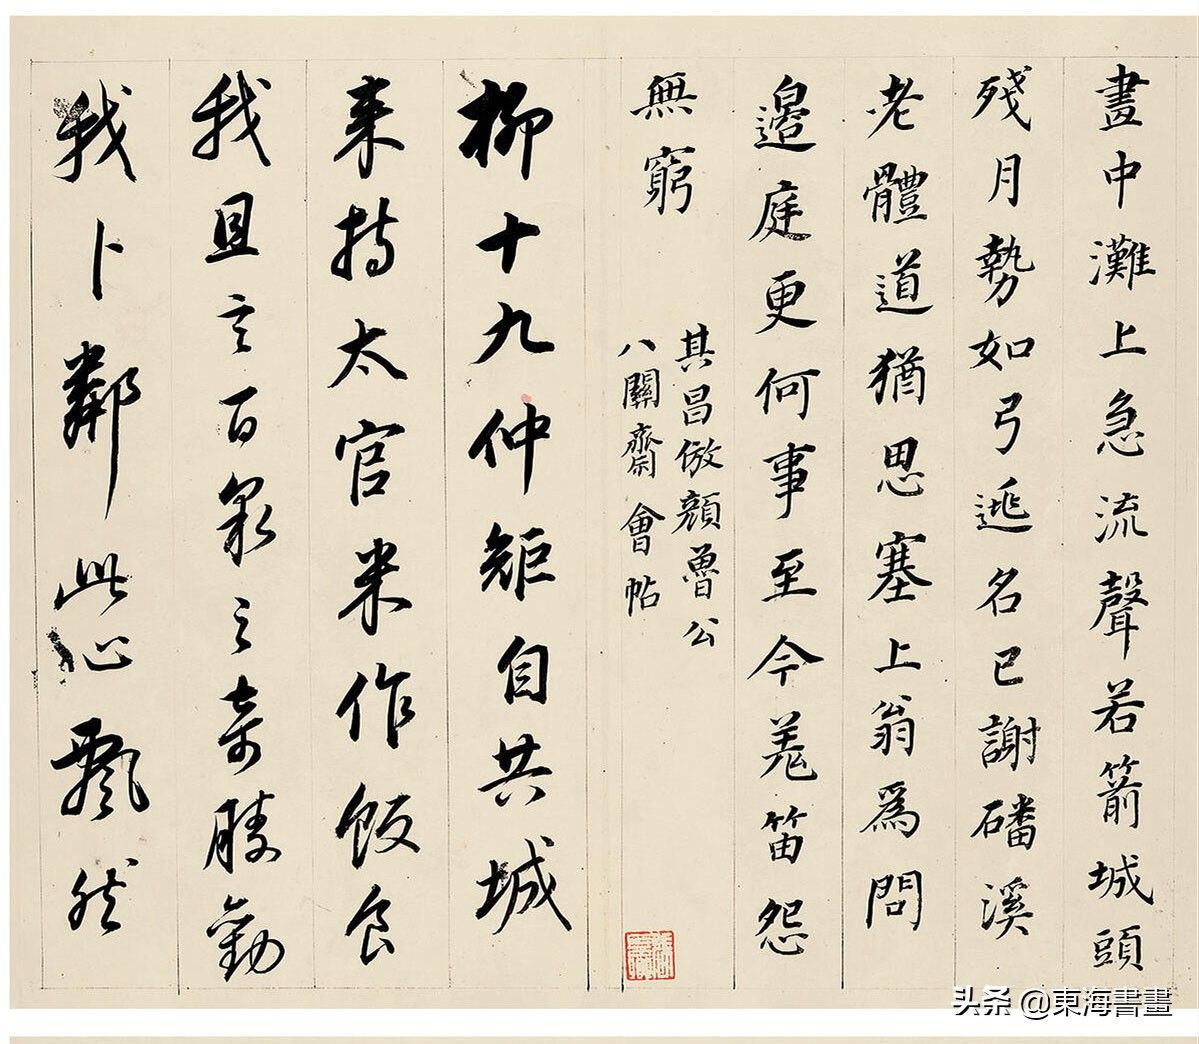 畫中灘上急流聲若箭城頭
殘月勢如弓逃名已謝磻溪
老體道猶思塞上翁為問
邊庭更何事至今羌笛怨
無窮
其昌倣顏魯公
八關齋會帖
柳十九仲矩自共城
来持太官米作飯食
我且言百泉之奇勝勸
我卜鄰此心飄然
头条 @東海書畫